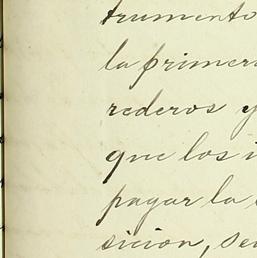 trumento
la primer
rederos y
que los i
pagar la
sicion, se